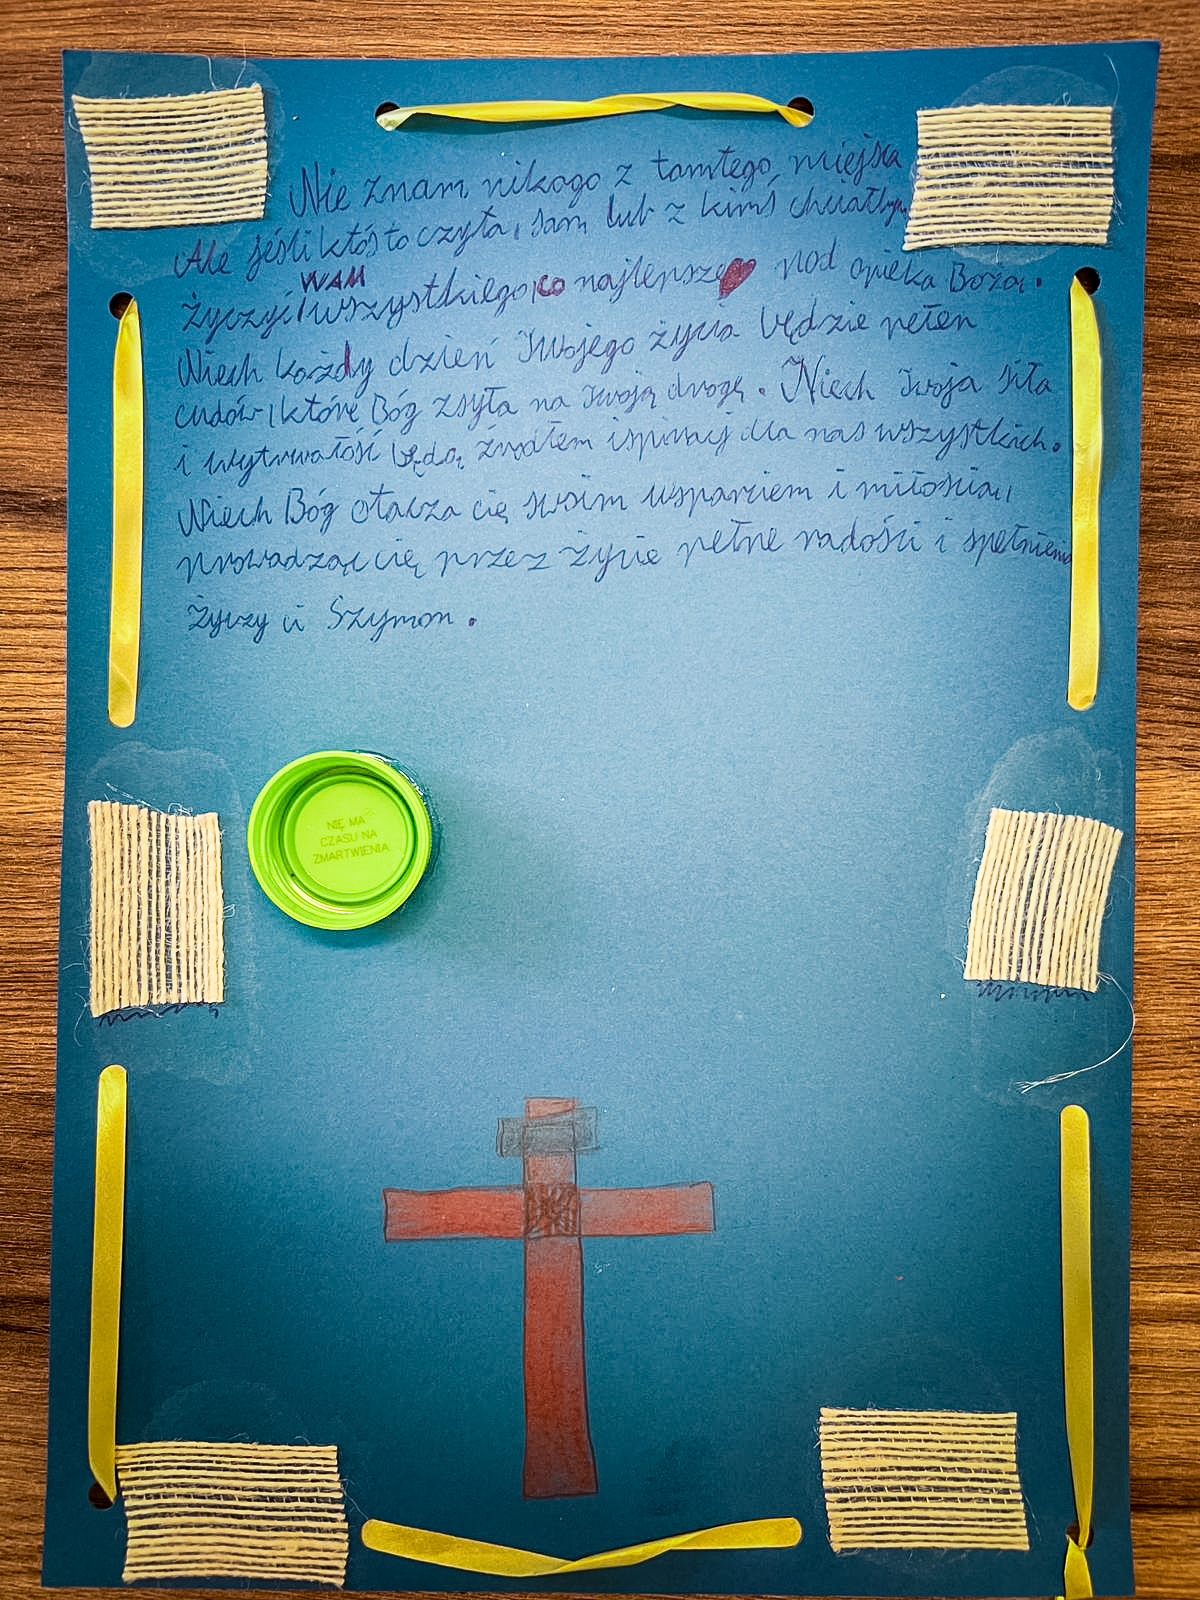 Nie znam nikogo z tamtego miejsca
Ale jeśli ktoś to czyta, sam lub z kimś chciałbym
życzyć WAM wszystkiego co najlepsze pod opieka Boża.
Niech każdy dzień Twojego życia będzie pełen
cudów, które Bóg zsyła na Twoją drogę. Niech Twoja siła
i wytrwałość będą źródłem ispiracij dla nas wszystkich.
Niech Bóg otacza cię swoim wsparciem i miłością,
prowadząc cię przez życie pełne radości i spełnienia
życzy ci Szymon.
NIE MA
CZASU NA
ZMARTWIENIA